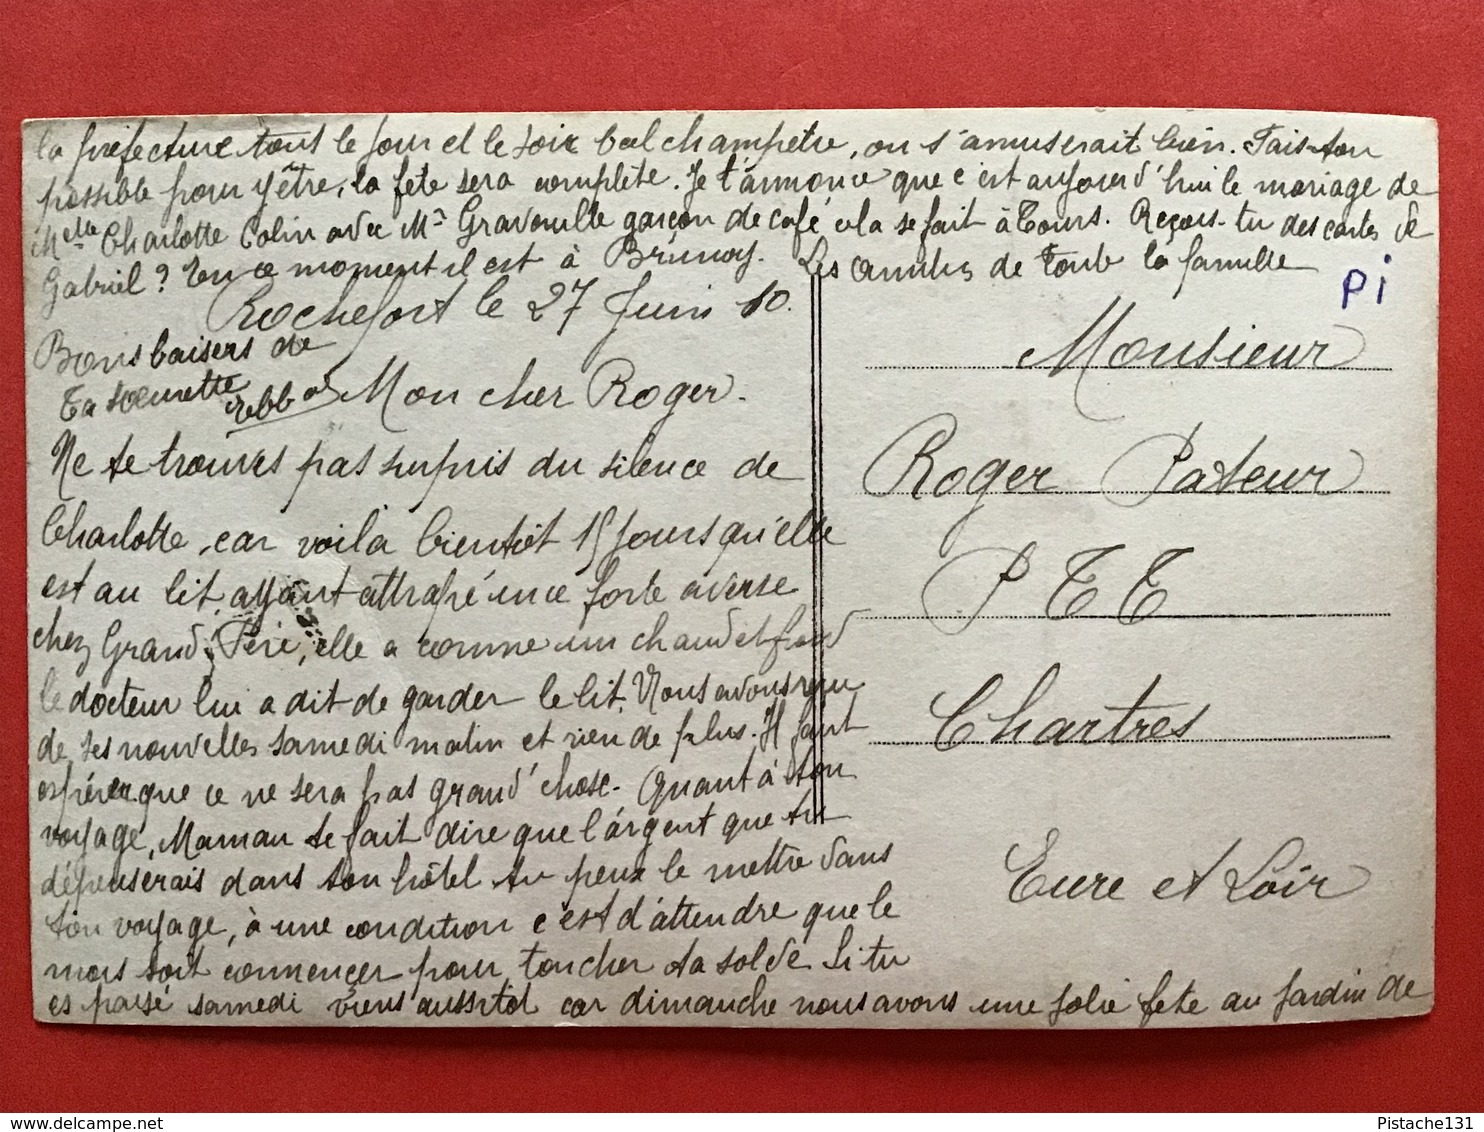 la préfecture tout le jour et le soir bal champêtre, on s'amuserait bien. Fais ton
possible pour y être, la fete sera complète. Je t'annonce que c'est aujourd'hui le mariage de
Melle Charlotte Colin avec Mr Gravouille garçon de café cela se fait à Tours. Reçois-tu des cartes de
Gabriel ? En ce moment il est à Brunoy. Les amitiés de toute la famille
Pi
Rochefort le 27 Juin 10.
Bons baisers de
Ta soeurette
Mon cher Roger.
Ne te trouves pas surpris du silence de
Charlotte, car voilà bientôt 15 jours qu'elle
est au lit, ayant attrapé une forte averse
chez Grand, Père, elle a comme un chaud et froid
le docteur lui a dit de garder le lit. Nous avons reçu
de ses nouvelles samedi matin et rien de plus. Il faut
espérer que ce ne sera pas grand'chose. Quant à ton
voyage, Maman te fait dire que l'argent que tu
dépenserais dans ton hôtel tu peux le mettre dans
ton voyage, à une condition c'est d'attendre que le
mois soit commencer pour toucher ta solde Si tu
es payé samedi viens aussitôt car dimanche nous avons une jolie fete au Jardin de
Monsieur
Roger Pateur
P T T
Chartres
Eure et Loir
delcampe.net
Pistache131